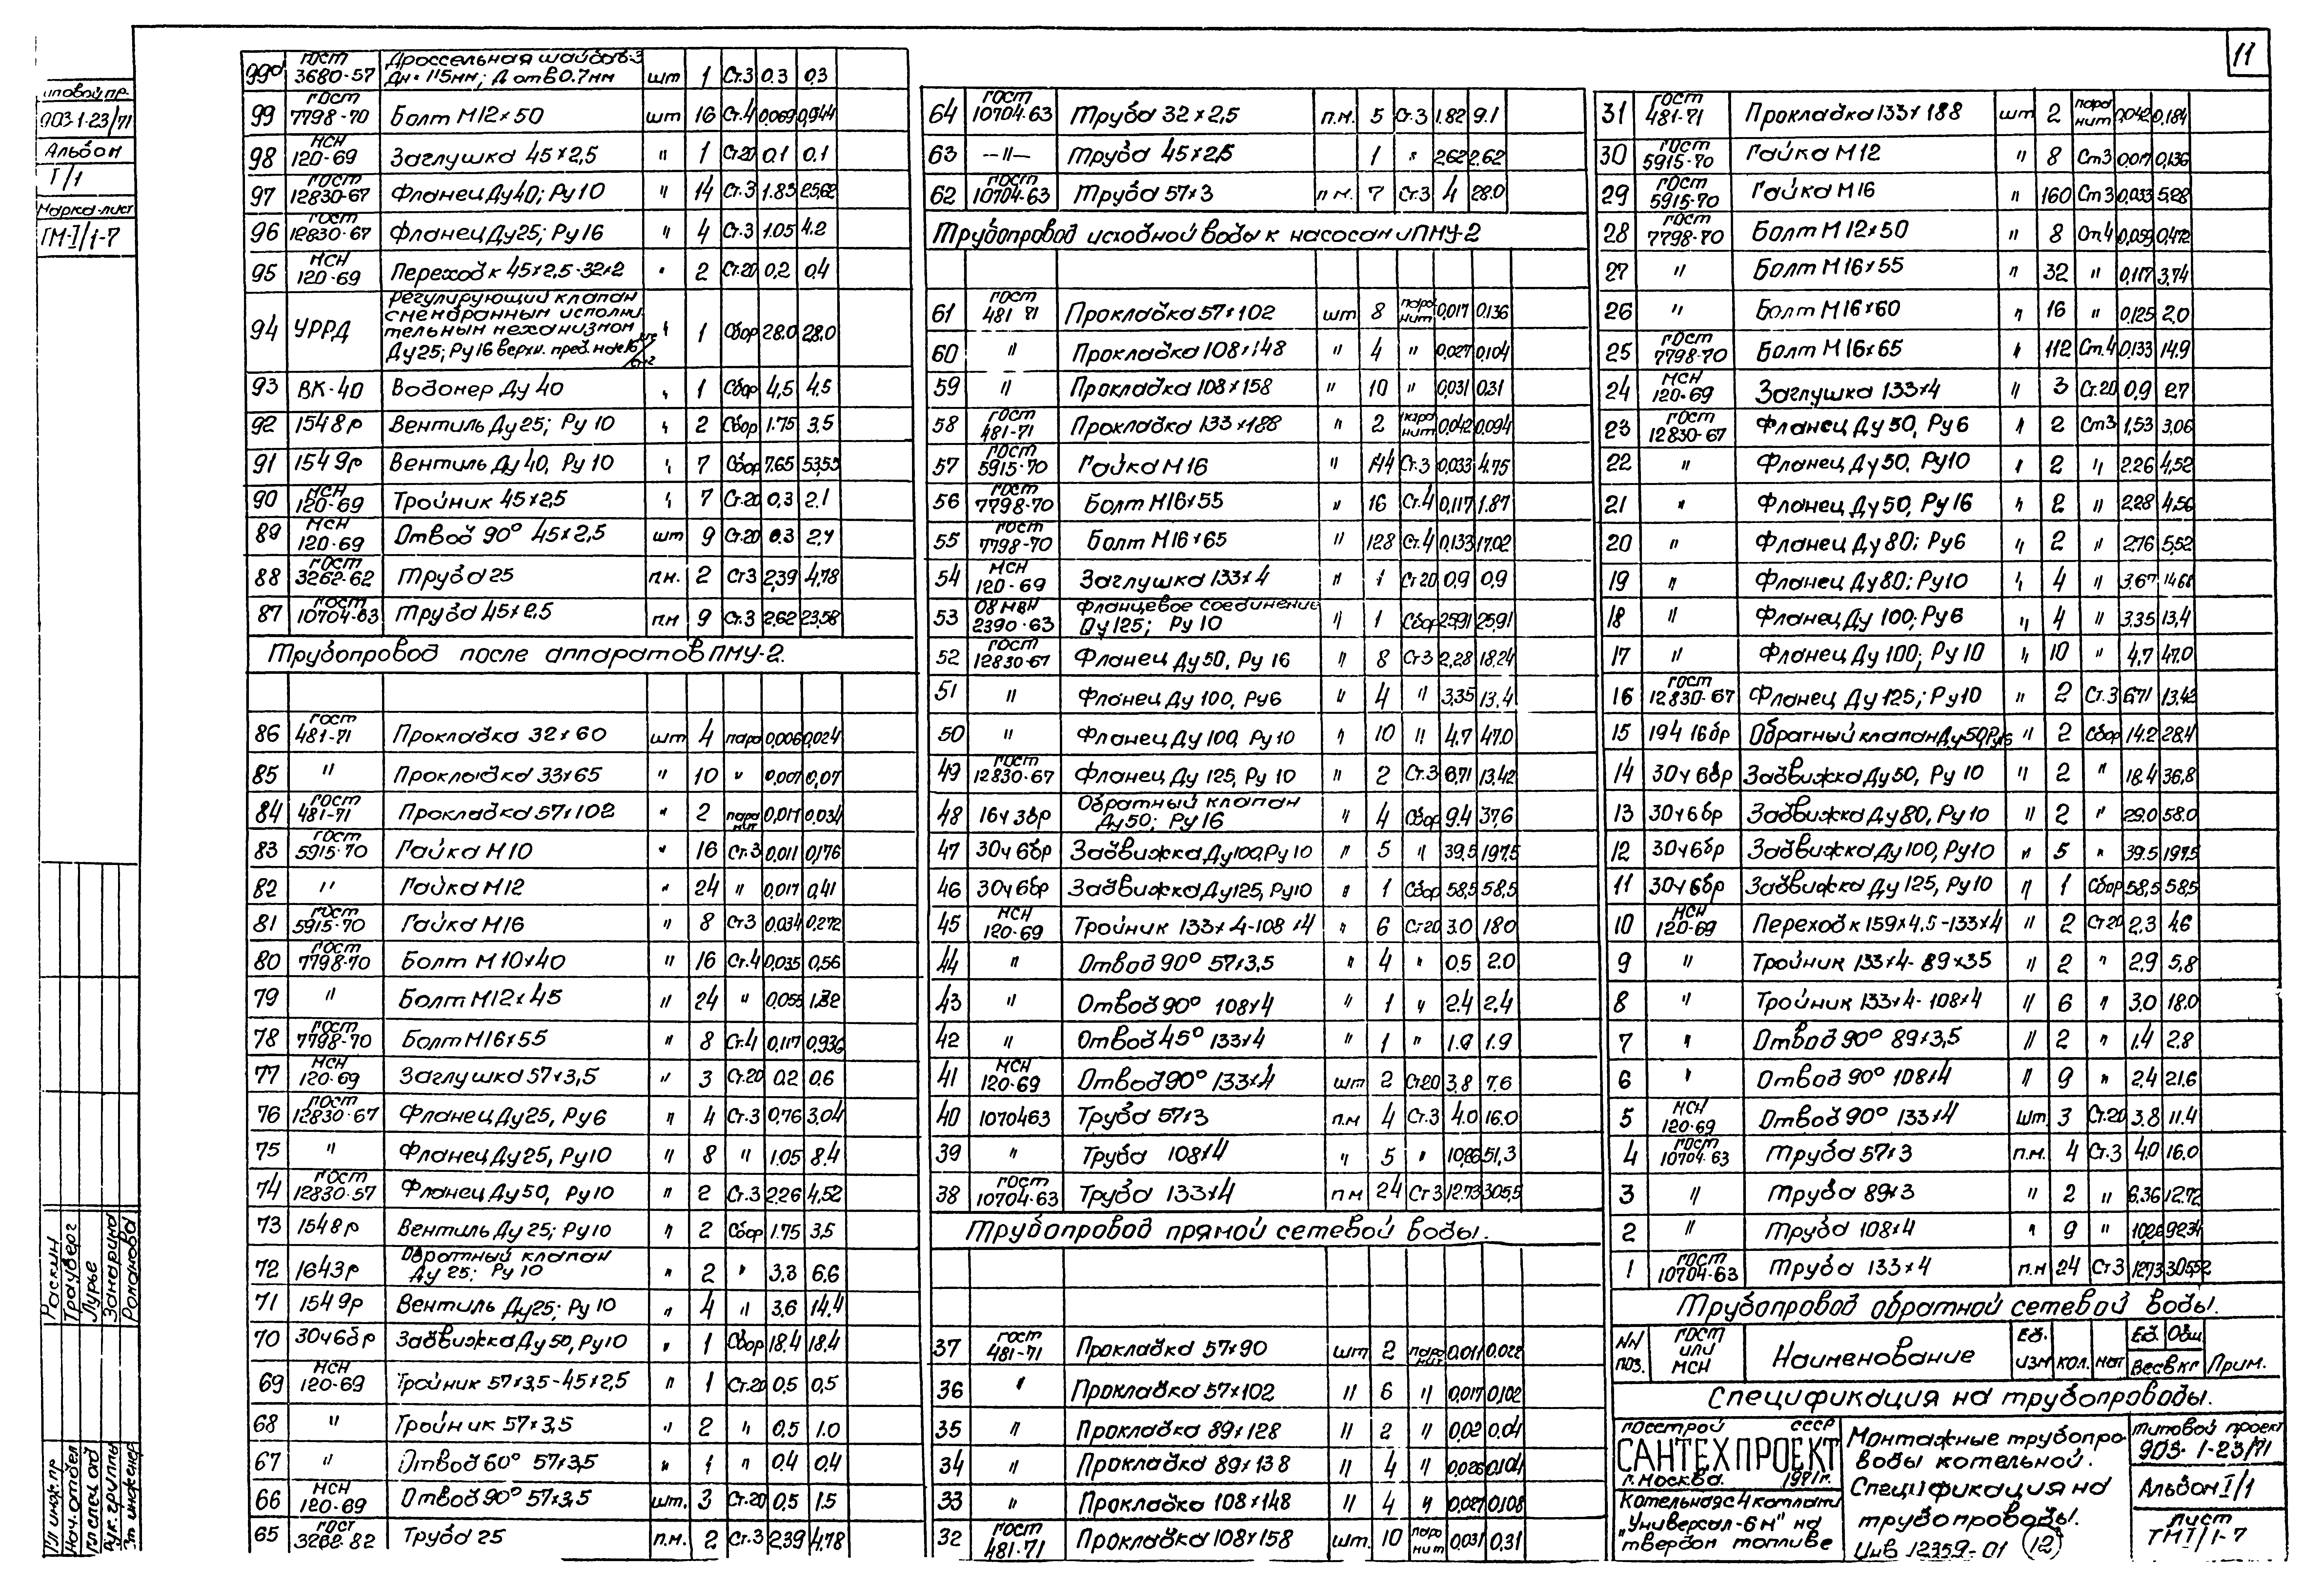 11
иповой пр.
903-1-23/71
Альбом
I/1
Марка-лист
ТМ-I/1-7
99а ГОСТ 3680-57 Дроссельная шайба Дн=115мм; Д отв 0.7мм шт 1 Ст.3 0.3 0,3
99 ГОСТ 7798-70 Болт М12×50 шт 16 Ст.4 0,069 0,944
98 МСН 120-69 Заглушка 45×2,5 " 1 Ст.20 0.1 0.1
97 ГОСТ 12830-67 Фланец Ду40; Ру10 " 14 Ст.3 1.83 25,62
96 ГОСТ 12830-67 Фланец Ду25; Ру16 " 4 Ст.3 1.05 4.2
95 МСН 120-69 Переход к 45×2,5-32×2 " 2 Ст.20 0,2 0,4
94 УРРД Регулирующий клапан
с мембранным исполни-
тельным механизмом
Ду25; Ру16 верхн. пред. " 1 Сбор 28.0 28.0
93 ВК-40 Водомер Ду 40 " 1 Сбор 4,5 4,5
92 15ч8р Вентиль Ду25; Ру 10 " 2 Сбор 1.75 3,5
91 15ч9р Вентиль Ду 40, Ру 10 " 7 Сбор 7.65 53,55
90 МСН 120-69 Тройник 45×2,5 " 7 Ст.20 0,3 2.1
89 МСН 120-69 Отвод 90° 45×2,5 шт 9 Ст.20 0.3 2.7
88 ГОСТ 3262-62 Труба 25 п.м. 2 Ст3 2,39 4,78
87 ГОСТ 10704-63 Труба 45×2,5 п.м 9 Ст.3 2,62 23,58
Трубопровод после аппаратов ПМУ-2.
86 ГОСТ 481-71 Прокладка 32×60 шт 4 паро 0,006 0,024
85 " Прокладка 33×65 " 10 " 0,007 0,07
84 ГОСТ 481-71 Прокладка 57×102 " 2 паронит 0,017 0,034
83 ГОСТ 5915-70 Гайка М10 " 16 Ст.3 0,011 0,176
82 " Гайка М12 " 24 " 0,017 0,41
81 ГОСТ 5915-70 Гайка М16 " 8 Ст3 0,034 0,272
80 ГОСТ 7798-70 Болт М10×40 " 16 Ст.4 0,035 0,56
79 " Болт М12×45 " 24 " 0,055 1,32
78 ГОСТ 7798-70 Болт М16×55 " 8 Ст.4 0,117 0,936
77 МСН 120-69 Заглушка 57×3,5 " 3 Ст.20 0.2 0.6
76 ГОСТ 12830-67 Фланец Ду25, Ру6 " 4 Ст.3 0,76 3,04
75 " Фланец Ду25, Ру10 " 8 " 1.05 8.4
74 ГОСТ 12830-57 Фланец Ду50, Ру10 " 2 Ст.3 2,26 4,52
73 15ч8р Вентиль Ду 25; Ру10 " 2 Сбор 1.75 3.5
72 16ч3р Обратный клапан
Ду 25; Ру 10 " 2 " 3.3 6.6
71 15ч9р Вентиль Ду25; Ру 10 " 4 " 3.6 14.4
70 30ч6бр Задвижка Ду 50, Ру10 " 1 Сбор 18.4 18.4
69 МСН 120-69 Тройник 57×3,5-45×2,5 " 1 Ст.20 0,5 0,5
68 " Тройник 57×3,5 " 2 " 0,5 1.0
67 " Отвод 60° 57×3,5 " 1 " 0.4 0.4
66 МСН 120-69 Отвод 90° 57×3,5 шт. 3 Ст.20 0,5 1.5
65 ГОСТ 3262-82 Труба 25 п.м. 2 Ст.3 2,39 4,78
64 ГОСТ 10704-63 Труба 32×2,5 п.м. 5 Ст.3 1.82 9.1
63 —"— Труба 45×2,5 1 " 2,62 2.62
62 ГОСТ 10704-63 Труба 57×3 п.м. 7 Ст.3 4 28.0
Трубопровод исходной воды к насосам и ПМУ-2
61 ГОСТ 481 71 Прокладка 57×102 шт 8 паронит 0,017 0,136
60 " Прокладка 108×148 " 4 " 0,027 0,104
59 " Прокладка 108×158 " 10 " 0,031 0.31
58 ГОСТ 481-71 Прокладка 133×188 " 2 паронит 0,042 0,094
57 ГОСТ 5915-70 Гайка М16 " 144 Ст.3 0,033 4.75
56 ГОСТ 7798-70 Болт М16×55 " 16 Ст.4 0,117 1.87
55 ГОСТ 7798-70 Болт М16×65 " 128 Ст.4 0,133 17.02
54 МСН 120-69 Заглушка 133×4 " 1 Ст 20 0,9 0,9
53 08 МВН 2390-63 Фланцевое соединение
Ду125; Ру 10 " 1 Сбор 25,91 25,91
52 ГОСТ 12830-67 Фланец Ду50, Ру 16 " 8 Ст3 2,28 18,24
51 " Фланец Ду 100, Ру6 " 4 " 3,35 13,4
50 " Фланец Ду 100, Ру 10 " 10 " 4,7 47.0
49 ГОСТ 12830-67 Фланец Ду 125, Ру 10 " 2 Ст.3 6,71 13,42
48 16ч3бр Обратный клапан
Ду50; Ру 16 " 4 Сбор 9.4 37,6
47 30ч6бр Задвижка Ду100, Ру 10 " 5 " 39,5 197,5
46 30ч6бр Задвижка Ду125, Ру10 " 1 Сбор 58,5 58,5
45 МСН 120-69 Тройник 133×4-108×4 " 6 Ст20 3.0 180
44 " Отвод 90° 57×3,5 " 4 " 0.5 2.0
43 " Отвод 90° 108×4 " 1 " 2.4 2.4
42 " Отвод 45° 133×4 " 1 " 1.9 1.9
41 МСН 120-69 Отвод 90° 133×4 шт 2 Ст20 3,8 7.6
40 1070463 Труба 57×3 п.м 4 Ст.3 4.0 16.0
39 " Труба 108×4 " 5 " 10,26 51,3
38 ГОСТ 10704-63 Труба 133×4 п.м 24 Ст 3 12.73 305,5
Трубопровод прямой сетевой воды.
37 ГОСТ 481-71 Прокладка 57×90 шт 2 паронит 0,011 0,022
36 " Прокладка 57×102 " 6 " 0,017 0,102
35 " Прокладка 89×128 " 2 " 0,02 0,04
34 " Прокладка 89×138 " 4 " 0,026 0,104
33 " Прокладка 108×148 " 4 " 0,027 0,108
32 ГОСТ 481-71 Прокладка 108×158 шт. 10 паронит 0,031 0,31
31 ГОСТ 481-71 Прокладка 133×188 шт 2 паронит 0,042 0,184
30 ГОСТ 5915-70 Гайка М12 " 8 Ст3 0,017 0,136
29 ГОСТ 5915-70 Гайка М16 " 160 Ст3 0,033 5,28
28 ГОСТ 7798-70 Болт М12×50 " 8 Ст.4 0,059 0,472
27 " Болт М16×55 " 32 " 0,117 3,74
26 " Болт М16×60 " 16 " 0,125 2.0
25 ГОСТ 7798-70 Болт М16×65 " 112 Ст.4 0,133 14.9
24 МСН 120-69 Заглушка 133×4 " 3 Ст.20 0,9 2.7
23 ГОСТ 12830-67 Фланец Ду 50, Ру6 " 2 Ст3 1,53 3,06
22 " Фланец Ду50, Ру10 " 2 " 2.26 4,52
21 " Фланец Ду50, Ру 16 " 2 " 2.28 4,56
20 " Фланец Ду 80; Ру6 " 2 " 2,76 5,52
19 " Фланец Ду80; Ру10 " 4 " 3.67 14.68
18 " Фланец Ду 100; Ру6 " 4 " 3.35 13,4
17 " Фланец Ду 100; Ру 10 " 10 " 4,7 47.0
16 ГОСТ 12830-67 Фланец Ду125; Ру10 " 2 Ст.3 6,71 13,42
15 19ч 16бр Обратный клапан Ду50, Ру16 " 2 Сбор 14.2 28.4
14 30ч6бр Задвижка Ду50, Ру 10 " 2 " 18.4 36,8
13 30ч6бр Задвижка Ду80, Ру 10 " 2 " 29.0 58.0
12 30ч6бр Задвижка Ду100, Ру10 " 5 " 39.5 197,5
11 30ч6бр Задвижка Ду 125, Ру10 " 1 Сбор 58,5 58,5
10 МСН 120-69 Переход к 159×4,5-133×4 " 2 Ст 20 2,3 4.6
9 " Тройник 133×4-89×3.5 " 2 " 2,9 5,8
8 " Тройник 133×4-108×4 " 6 " 3.0 18.0
7 " Отвод 90° 89×3,5 " 2 " 1.4 2.8
6 " Отвод 90° 108×4 " 9 " 2,4 21.6
5 МСН 120-69 Отвод 90° 133×4 шт. 3 Ст.20 3.8 11.4
4 ГОСТ 10704-63 Труба 57×3 п.м. 4 Ст.3 4,0 16.0
3 " Труба 89×3 " 2 " 6.36 12.72
2 " Труба 108×4 " 9 " 10,26 92.34
1 ГОСТ 10704-63 Труба 133×4 п.м 24 Ст 3 12,73 305,52
Трубопровод обратной сетевой воды.
NN поз. ГОСТ или МСН Наименование Ед. изм кол. мат Ед. Общ. Вес в кг Прим.
Спецификация на трубопроводы.
Госстрой СССР
САНТЕХПРОЕКТ
г. Москва. 1971г.
Котельная с 4 котлами
"Универсал-6М" на
твердом топливе
Монтажные трубопро-
воды котельной.
Спецификация на
трубопроводы.
Инв 12359-01 12
Типовой проект
903-1-23/71
Альбом I/1
Лист
ТМI/1-7
Гл. инж. пр Раскин
Нач. отдел Трауберг
Гл. спец. од Лурье
Рук. группы
Ст. инженер Романова